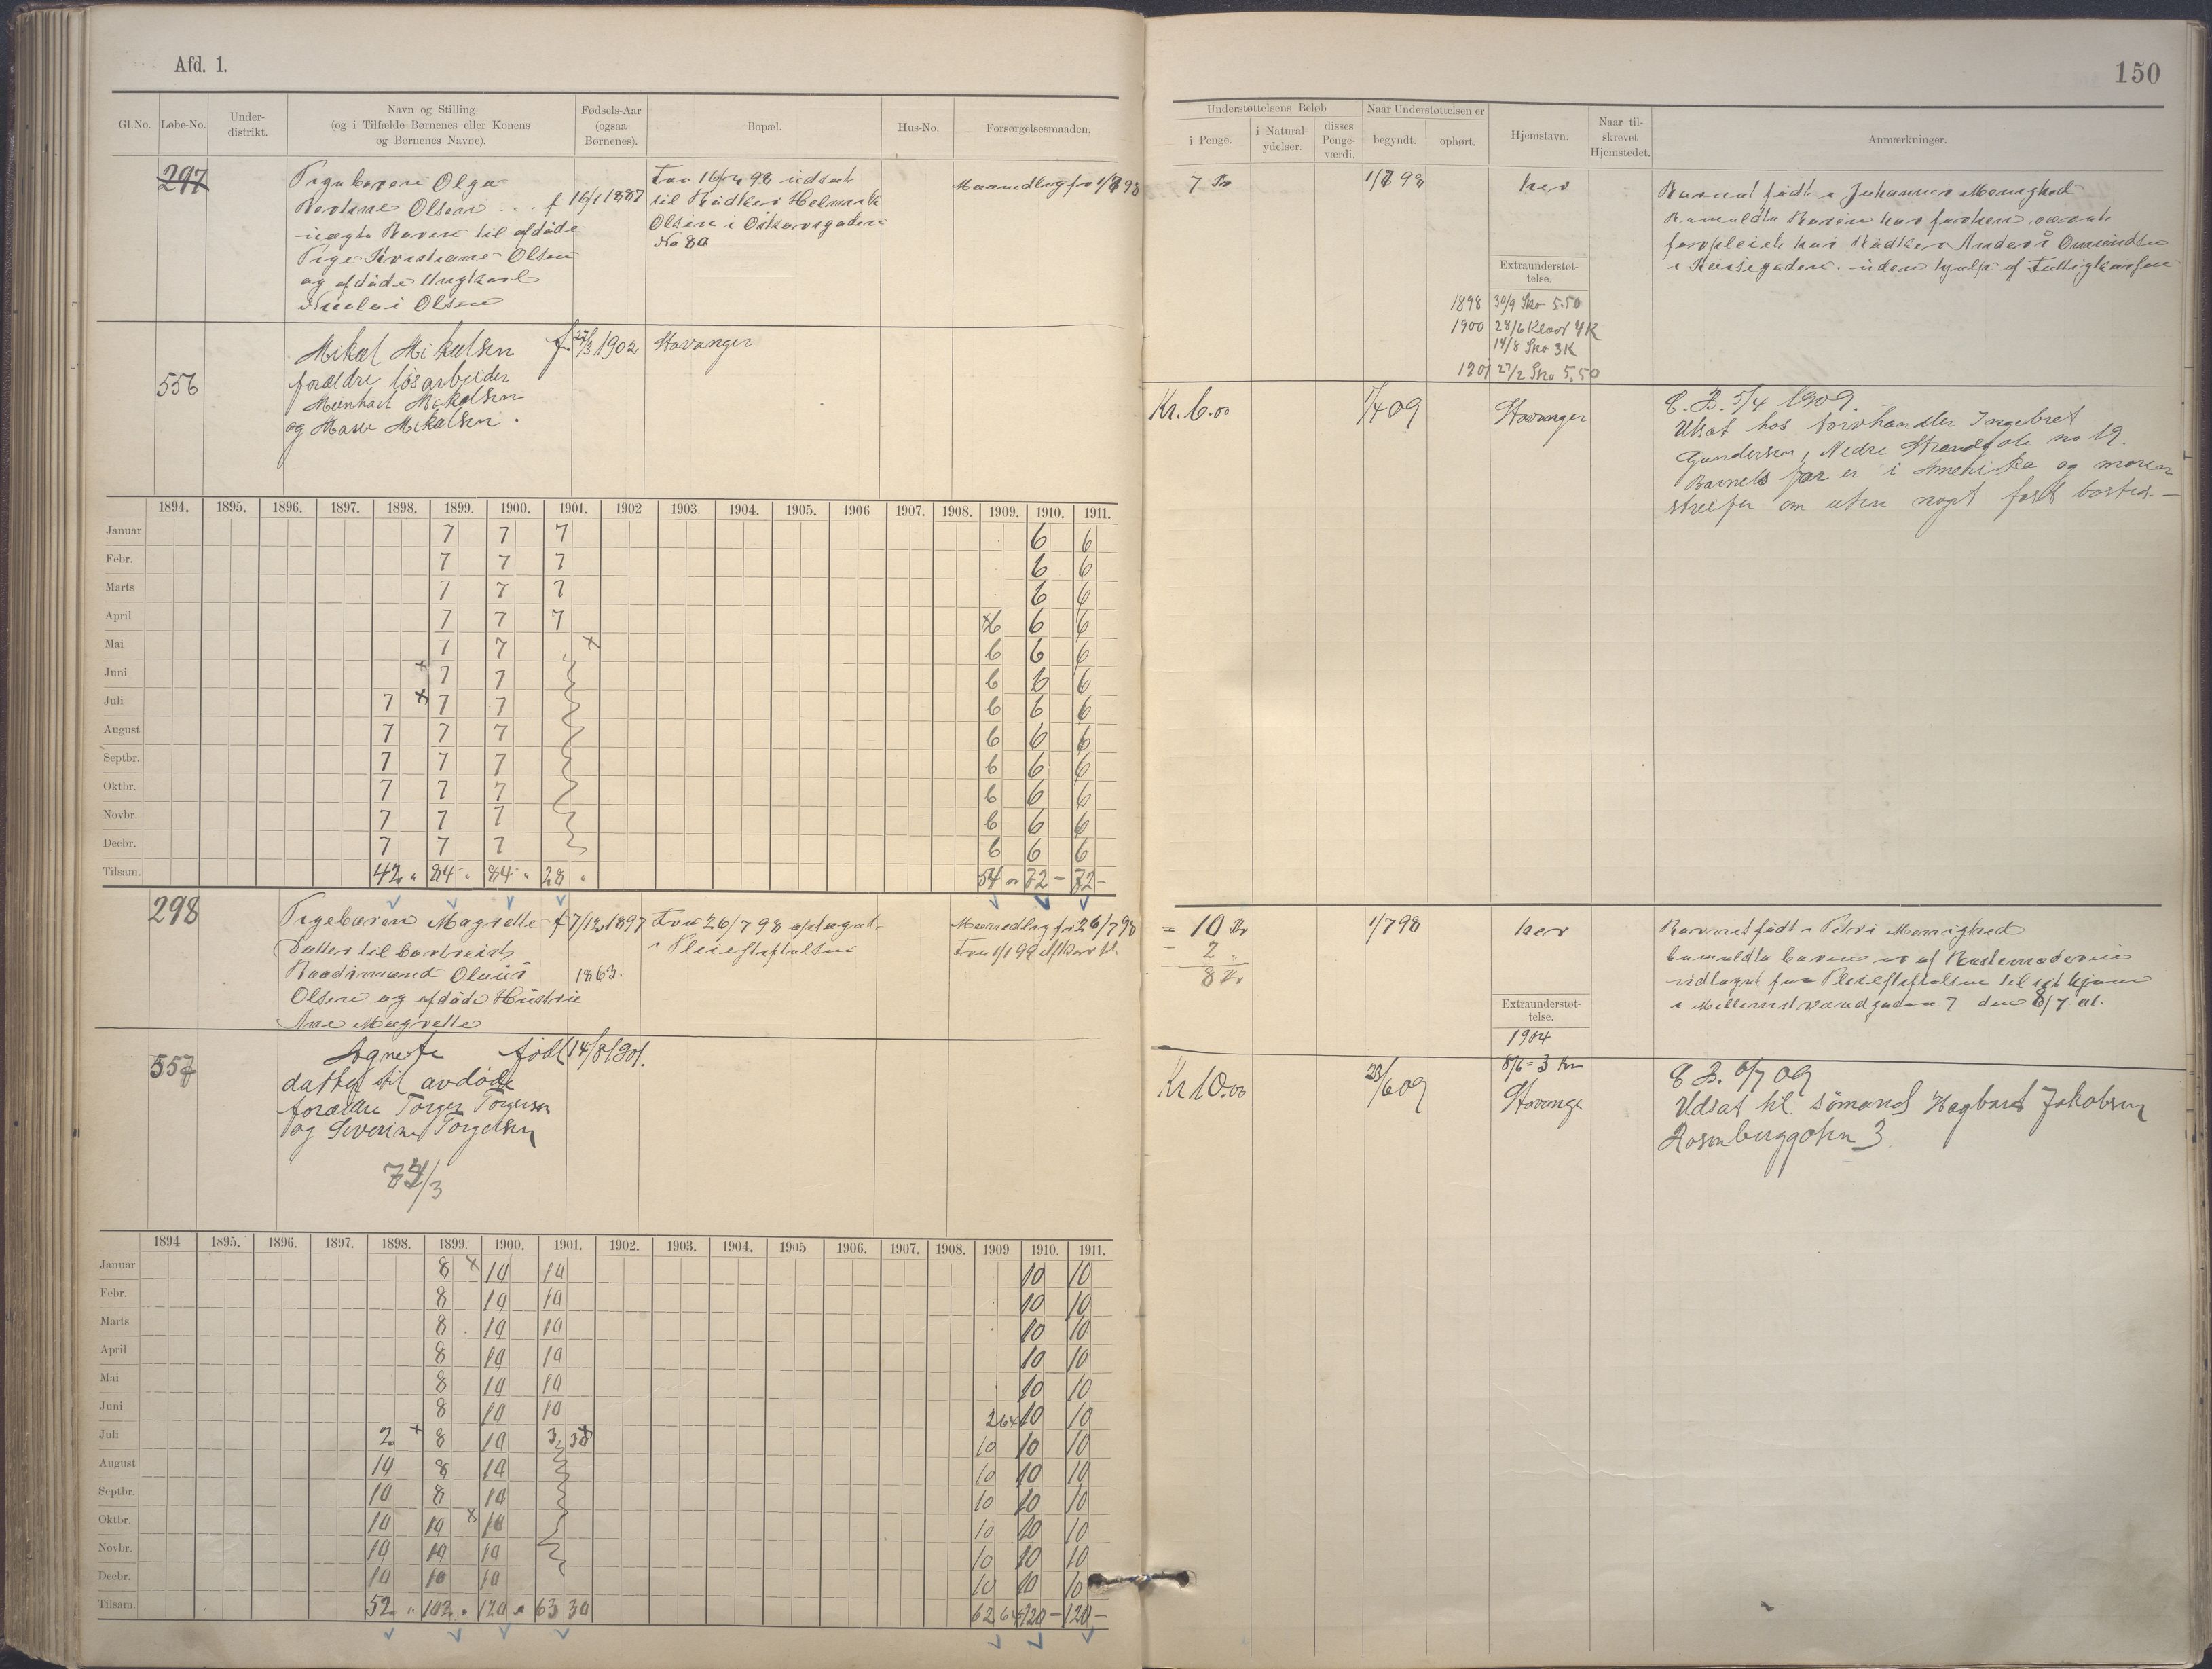 Afd. 1.
150
Gl.No. Løbe-No. Under-distrikt. Navn og Stilling (og i Tilfælde Børnenes eller Konens og Børnenes Navne). Fødsels-Aar (ogsaa Børnenes). Bopæl. Hus-No. Forsørgelsesmaaden.
Understøttelsens Beløb i Penge. i Natural-ydelser. disses Penge-værdi. Naar Understøttelsen er begyndt. ophørt. Hjemstavn. Naar til-skrevet Hjemstedet. Anmærkninger.
297
Pigebarnet Olga
Olsen f 16/1 1887
uægte Barn til afdøde
Pige Kristiane Olsen
og afdøde Ungkarl
Nicolai Olsen
Fra 16/7 98 udsat
til Bødker Helmik
Olsen i Oskarsgaden
No 80
Maanedlig fra 1/7 98
7 Kr
1/7 98
her
Barnet født i Johannes Menighed
Barnet har forhen været
forpleiet hos Bødker Anders Omundsen
uden hjælp af Fattigkassen
Extraunderstøt-telse.
1898 30/9 Sko 5.50
1900 28/6 Klær 4 K
14/8 Sko 3 K
1901 27/2 Sko 5.50
556
Mikal Mikalsen f. 27/3 1902 Stavanger
forældre løsarbeider
Meinhart Mikalsen
og Marie Mikalsen.
Kr. 6.00
1/4 09
Stavanger
E. B. 5/4 1909.
Utsat hos torvhandler Ingebret
Gundersen, Nedre Strandgate no 19.
Barnets far er i Amerika og moren
streifer om uten noget fast bosted. —
1894. 1895. 1896. 1897. 1898. 1899. 1900. 1901. 1902 1903. 1904. 1905. 1906 1907. 1908. 1909. 1910. 1911.
Januar 7 7 7 6 6
Febr. 7 7 7 6 6
Marts 7 7 7 6 6
April 7 7 7 x6 6 6
Mai 7 7 x 6 6 6
Juni 7 7 6 6 6
Juli 7 x 7 7 6 6 6
August 7 7 7 6 6 6
Septbr. 7 7 7 6 6 6
Oktbr. 7 7 7 6 6 6
Novbr. 7 7 7 6 6 6
Decbr. 7 7 7 6 6 6
Tilsam. 42 " 84 " 84 " 28 " 54 " 72 - 72 -
298
Pigebarn Magrette f 7/12 1897
Datter til bortreist
Olaus 1863.
Olsen og afdøde Hustru
Ane Magrette
Fra 26/7 98 optaget
i Pleiestiftelsen
Maanedlig fra 26/7 98
Fra 1/1 99
= 10 Kr
- 2 "
8 Kr
1/7 98
her
Barnet født i Petri Menighed
udtaget fra Pleiestiftelsen til sit hjem
i Mellemstrandgaden 7 den 8/7 01.
Extraunderstøt-telse.
1904
8/6 = 3 Kr
557
Agnete født 14/8 1901.
datter til avdøde
forældre Torger Torgersen
og Severine Torgersen
Kr 10.00
23/6 09
Stavanger
E B. 6/7 09
Udsat til sömand Hagbart Jakobsen
Rosenberggaten 3
1894 1895. 1896. 1897. 1898. 1899. 1900. 1901. 1902. 1903. 1904. 1905 1906. 1907. 1908. 1909 1910. 1911.
Januar 8 x 10 10 10 10
Febr. 8 10 10 10 10
Marts 8 10 10 10 10
April 8 10 10 10 10
Mai 8 10 10 10 10
Juni 8 10 10 2 64 10 10
Juli 2 x 8 10 3 30 10 10 10
August 10 8 10 10 10 10
Septbr. 10 8 10 10 10 10
Oktbr. 10 10 10 10 10 10
Novbr. 10 10 10 10 10 10
Decbr. 10 10 10 10 10 10
Tilsam. 52 " 102 " 120 " 63 30 62 64 120 - 120 -